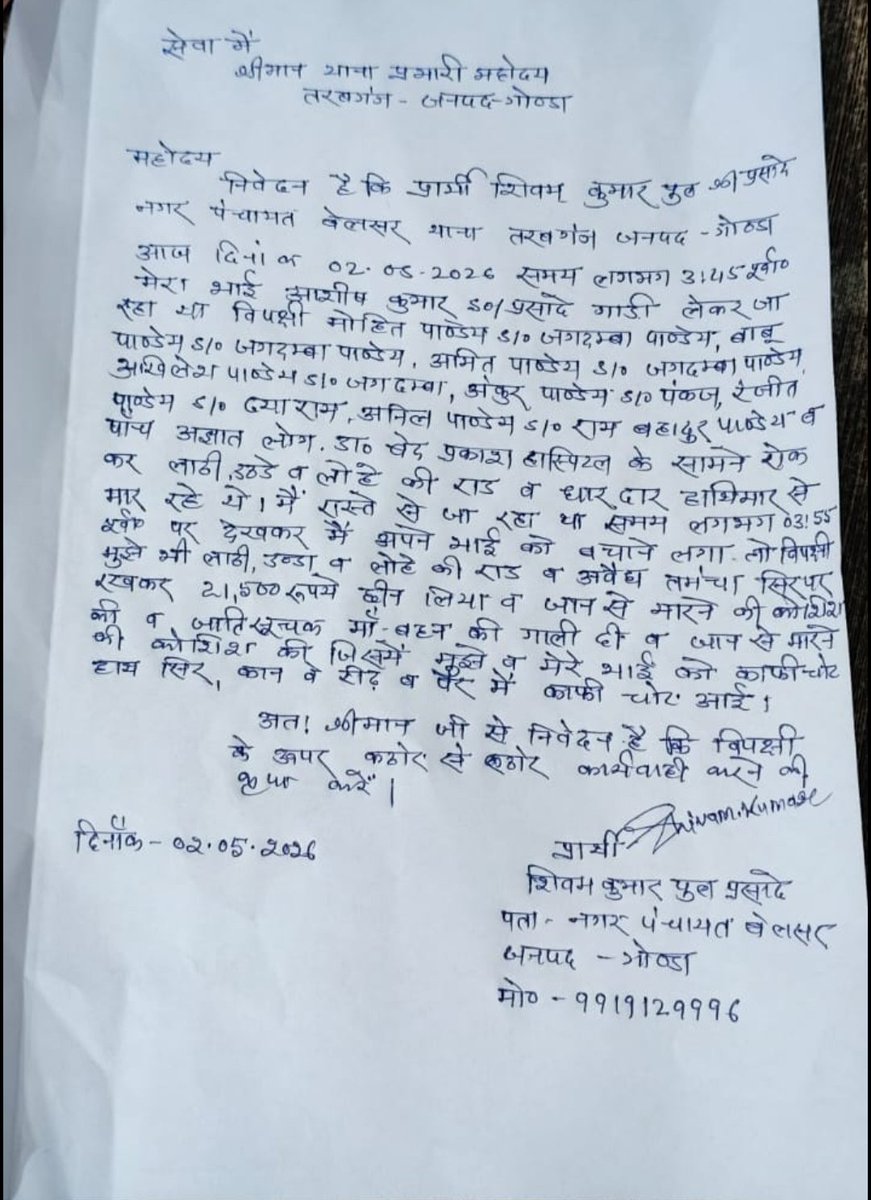 सेवा में
श्रीमान थाना प्रभारी महोदय
तरबगंज - जनपद-गोण्डा
महोदय
निवेदन है कि प्रार्थी शिवम् कुमार पुत्र श्री प्रसादे
नगर पंचायत बेलसर थाना तरबगंज जनपद - गोण्डा
आज दिनांक 02.05.2026 समय लगभग 3:45
मेरा भाई आशीष कुमार S०/प्रसादे गाडी लेकर जा
रहा था विपक्षी मोहित पाण्डेय S/० जगदम्बा पाण्डेय, बाबू
पाण्डेय S/० जगदम्बा पाण्डेय, अमित पाण्डेय S/० जगदम्बा पाण्डेय,
अखिलेश पाण्डेय S/० जगदम्बा, अंकुर पाण्डेय S/० पंकज, रंजीत
पाण्डेय S/० दयाराम, अनिल पाण्डेय S/० राम बहादुर पाण्डेय व
पाँच अज्ञात लोग. डा० वेद प्रकाश हास्पिटल के सामने रोक
कर लाठी, डण्डे व लोहे की राड व धारदार हाथियार से
मार रहे थे। मैं रास्ते से जा रहा था समय लगभग 03:55
पर देखकर मैं अपने भाई को बचाने लगा तो विपक्षी
मुझे भी लाठी, डन्डा व लोहे की राड व अवैध तमंचा सिरपर
रखकर 21,500 रूपये छीन लिया व जान से मारने की कोशिश
की व जातिसूचक माँ-बहन की गाली दी व जान से मारने
की कोशिश की जिसमें मुझे व मेरे भाई को काफी चोट
हाथ सिर, कान व रीढ़ व पैर में काफी चोट आई।
अतः श्रीमान जी से निवेदन है कि विपक्षी
के ऊपर कठोर से कठोर कार्यवाही करने की
कृपा करें।
Shivam.Kumar
दिनाँक - 02.05.2026
प्रार्थी
शिवम कुमार पुत्र प्रसादे
पता - नगर पंचायत बेलसर
जनपद - गोण्डा
मो० - 9919129996